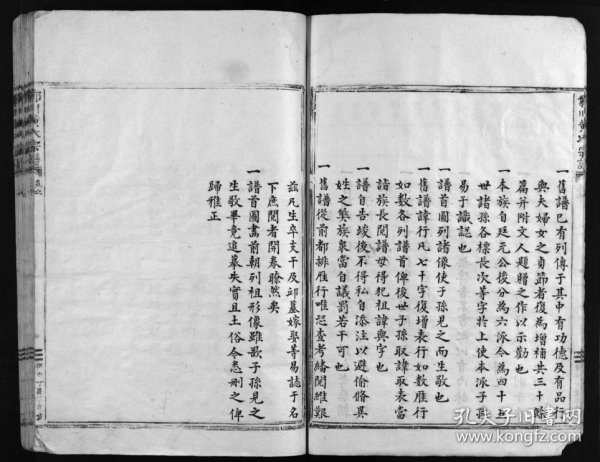 一舊譜已有列傳于其中有功德及有品行
與夫婦女之貞節者復為增補共三十餘
篇并附文人題贈之作以示勸也
一本族自廷元公後分為六派今為四十五
世諸孫各標長次等字於上使本派子孫
易于識認也
一譜首圖列諸像使子孫見之而生敬也
一舊譜諱行凡七十字復增表行如數雁行
如數各列譜首俾後世子孫取諱取表當
譜族長閱譜毋得犯祖諱與字也
一譜自告竣後不得私自添注以避偷脩異
姓之獘族眾當自議罰若干可也
一舊譜從前都排雁行唯恐查考繙閱維艱
茲凡生卒支干及邱墓嫁娶善易誌于名
下庶閱者開卷瞭然矣
一譜首圖畫前朝列祖形像雖歡子孫見之
生敬畢竟追摹失實且土俗今悉刪之俾
歸雅正
孔夫子旧书网
www.kongfz.com